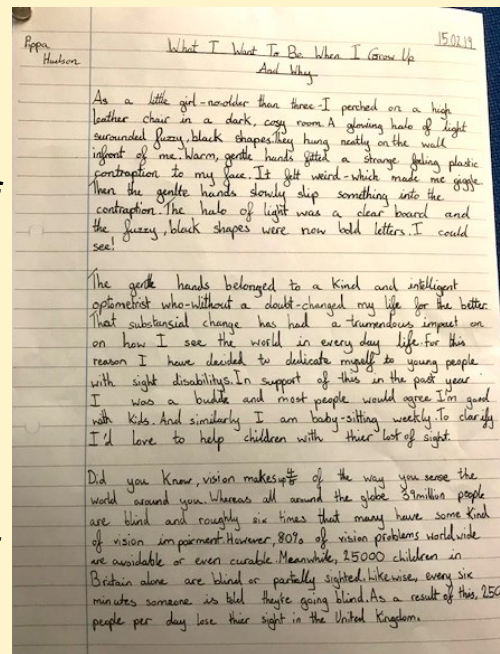 Pippa Huelson
15.02.19
What I Want To Be When I Grow Up
And Why
As a little girl - no older than three - I perched on a high
leather chair in a dark, cosy room. A glowing halo of light
surounded fuzzy, black shapes. They hung neatly on the wall
infront of me. Warm, gentle hands fitted a strange feling plastic
contraption to my face. It felt weird - which made me giggle.
Then the genlte hands slowly slip something into the
contraption. The halo of light was a clear board and
the fuzzy, black shapes were now bold letters. I could
see!
The gentle hands belonged to a kind and intelligent
optometrist who - without a doubt - changed my life for the better.
That substansial change has had a trumendous impact on
on how I see the world in every day life. For this
reason I have decided to dedicate myself to young people
with sight disabilitys. In support of this in the past year
I was a buddie and most people would agree I'm good
with kids. And similarly I am baby-sitting weekly. To clarify
I'd love to help children with thier lost of sight.
Did you know, vision makes up 4/5 of the way you sense the
world around you. Whereas all around the globe 39million people
are blind and roughly six times that many have some kind
of vision impairment. However, 80% of vision problems worldwide
are avoidable or even curable. Meanwhile, 25000 children in
Britain alone are blind or partially sighted. Likewise, every six
minutes someone is told they're going blind. As a result of this, 250
people per day lose thier sight in the United Kingdom.